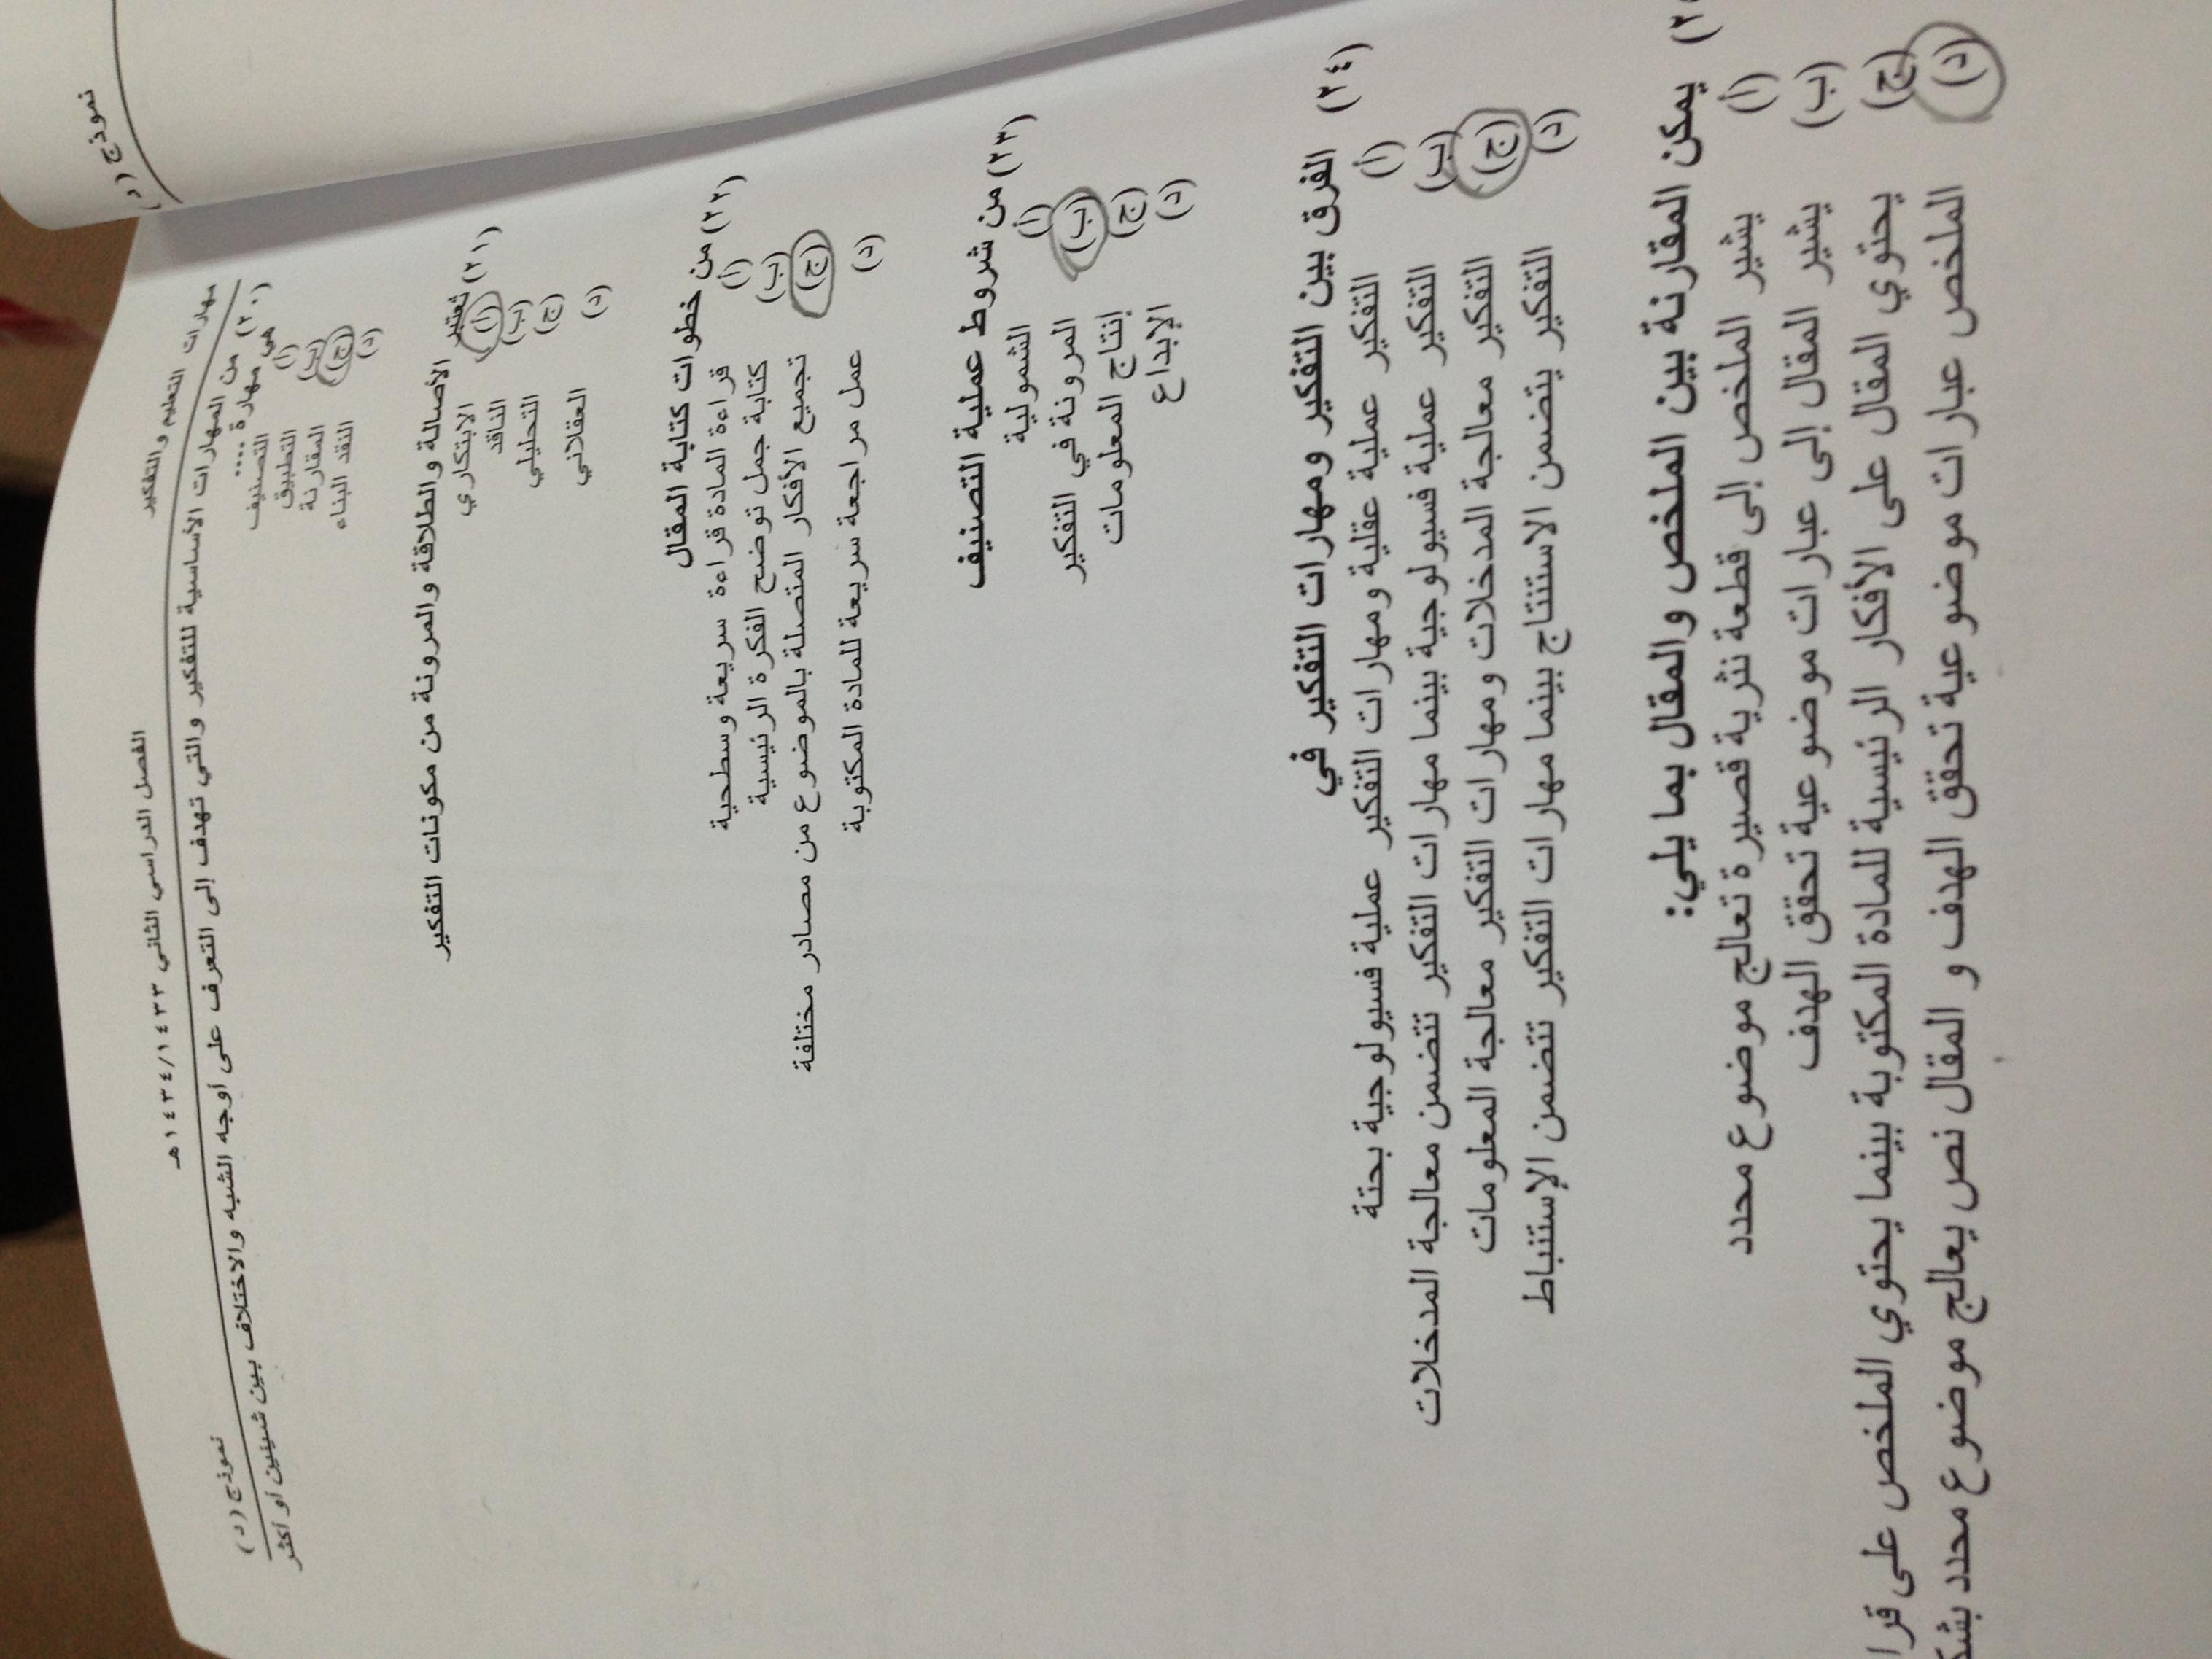 نموذج (د)
مهارات التعليم والتفكير
الفصل الدراسي الثاني ١٤٣٣/١٤٣٤هـ
نموذج (د)
(٢٠) من المهارات الأساسية للتفكير والتي تهدف إلى التعرف على أوجه الشبه والاختلاف بين شيئين أو أكثر
هي مهارة ....
(أ) التصنيف
(ب) التطبيق
(ج) المقارنة
(د) النقد البناء
(٢١) تعتبر الأصالة والطلاقة والمرونة من مكونات التفكير
(أ) الابتكاري
(ب) الناقد
(ج) التحليلي
(د) العقلاني
(٢٢) من خطوات كتابة المقال
(أ) قراءة المادة قراءة سريعة وسطحية
(ب) كتابة جمل توضح الفكرة الرئيسية
(ج) تجميع الأفكار المتصلة بالموضوع من مصادر مختلفة
(د) عمل مراجعة سريعة للمادة المكتوبة
(٢٣) من شروط عملية التصنيف
(أ) الشمولية
(ب) المرونة في التفكير
(ج) إنتاج المعلومات
(د) الإبداع
(٢٤) الفرق بين التفكير ومهارات التفكير في
(أ) التفكير عملية عقلية ومهارات التفكير عملية فسيولوجية بحتة
(ب) التفكير عملية فسيولوجية بينما مهارات التفكير تتضمن معالجة المدخلات
(ج) التفكير معالجة المدخلات ومهارات التفكير معالجة المعلومات
(د) التفكير يتضمن الاستنتاج بينما مهارات التفكير تتضمن الإستنباط
يمكن المقارنة بين الملخص والمقال بما يلي:
(أ) يشير الملخص إلى قطعة نثرية قصيرة تعالج موضوع محدد
(ب) يشير المقال إلى عبارات موضوعية تحقق الهدف
(ج) يحتوي المقال على الأفكار الرئيسية للمادة المكتوبة بينما يحتوي الملخص على
(د) الملخص عبارات موضوعية تحقق الهدف و المقال نص يعالج موضوع محدد